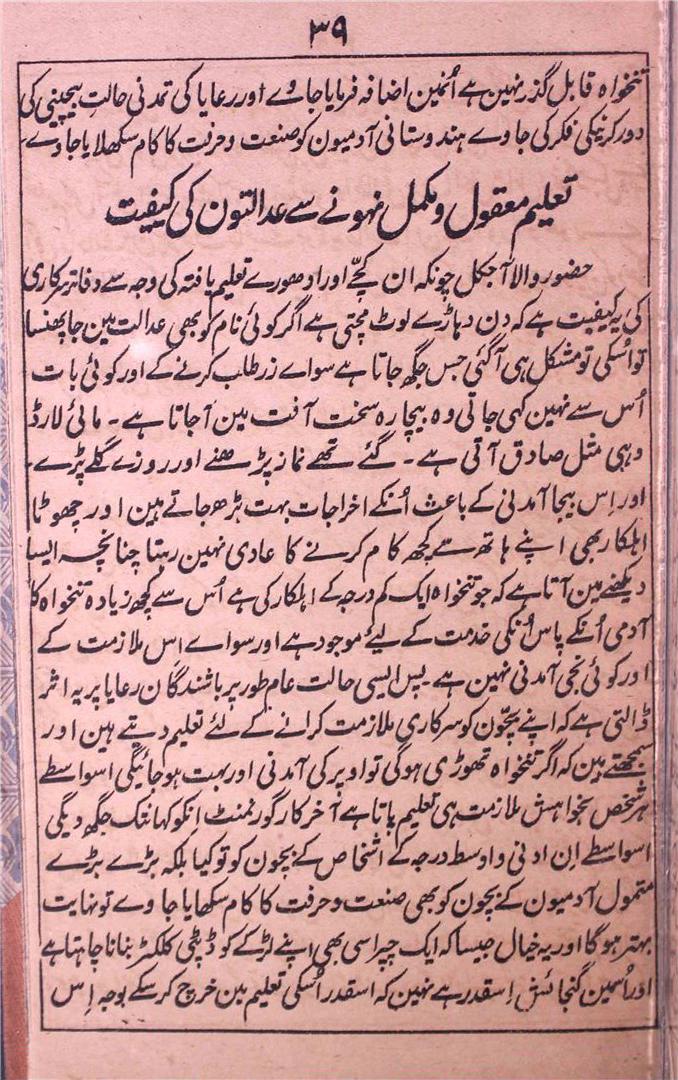 ۳۹
تنخواہ قابل گذر نہین ہے اُنمین اضافہ فرمایا جاوے اور رعایا کی تمدنی حالتِ بیچینی کی
دور کرنیکی فکر کی جاوے ہندوستانی آدمیون کو صنعت وحرفت کا کام سکھلایا جاوے۔
تعلیم معقول و مکمل نہونے سے عدالتون کی کیفیت
حضور والا آجکل چونکہ ان کچّے اور ادھورے تعلیم یافتہ کی وجہ سے دفاتر سرکاری
کی یہ کیفیت ہے کہ دن دہاڑے لوٹ مچتی ہے اگر کوئی نام کو بھی عدالت مین جا پھنسا
تو اُسکی تو مشکل ہی آگئی جس جگھ جاتا ہے سواے زر طلب کرنے کے اور کوئی بات
اُس سے نہین کہی جاتی وہ بیچارہ سخت آفت مین آجاتا ہے۔ مائی لارڈ
وہی مثل صادق آتی ہے۔ گئے تھے نماز پڑھنے اور روزے گلے پڑے۔
اور اِس بیجا آمدنی کے باعث اُنکے اخراجات بہت بڑھ جاتے ہین اور چھوٹا
اہلکار بھی اپنے ہاتھ سے کچھ کام کرنے کا عادی نہین رہتا چنانچہ ایسا
دیکھنے مین آتا ہے کہ جو تنخواہ ایک کم درجہ کے اہلکار کی ہے اُس سے کچھ زیادہ تنخواہ کا
آدمی اُنکے پاس اُنکی خدمت کے لیے موجود ہے اور سواے اِس ملازمت کے
اور کوئی نجی آمدنی نہین ہے۔ پس ایسی حالت عام طور پر باشندگان رعایا پر یہ اثر
ڈالتی ہے کہ اپنے بچّون کو سرکاری ملازمت کرانے کے لئے تعلیم دیتے ہین اور
سمجھتے ہین کہ اگر تنخواہ تھوڑی ہوگی تو اوپر کی آمدنی اور بہت ہو جائیگی اسواسطے
ہر شخص بخواہش ملازمت ہی تعلیم پاتا ہے آخر کار گورنمنٹ انکو کہانتک جگھ دیگی
اسواسطے اِن ادنی و اوسط درجہ کے اشخاص کے بچون کو تو کیا بلکہ بڑے بڑے
متمول آدمیون کے بچون کو بھی صنعت وحرفت کا کام سکھایا جاوے تو نہایت
بہتر ہوگا اور یہ خیال جیسا کہ ایک چپراسی بھی اپنے لڑکے کو ڈپٹی کلکٹر بنانا چاہتا ہے
اور اُسمین گنجائش اِسقدر ہے نہین کہ اسقدر اُسکی تعلیم مین خرچ کر سکے بوجہ اِس